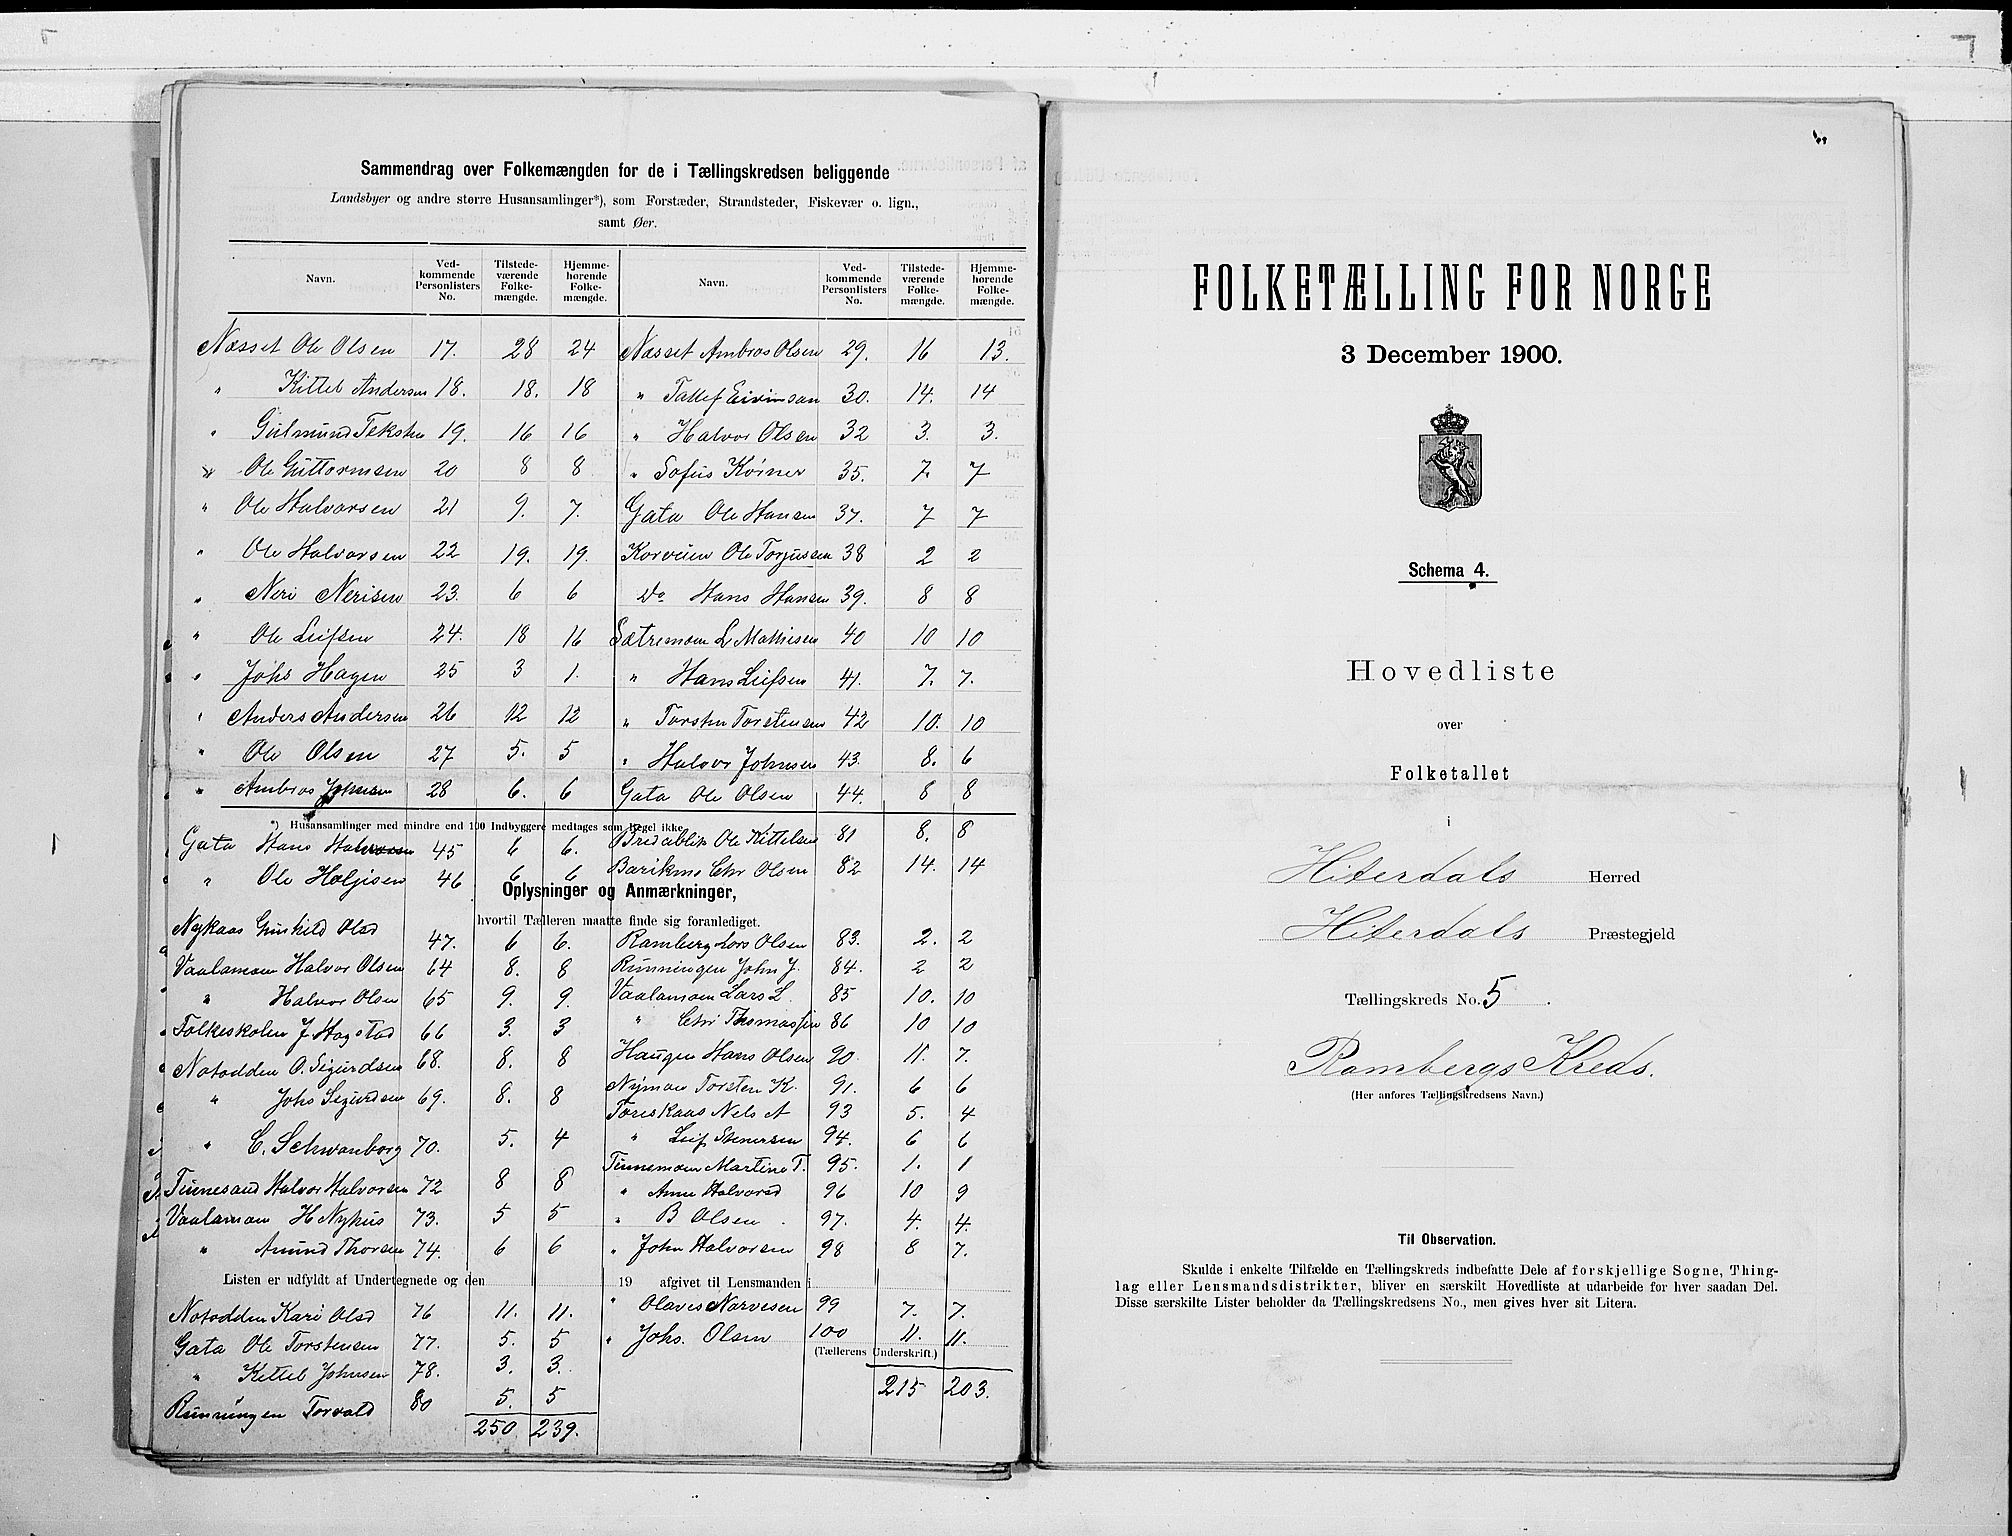 Sammendrag over Folkemængden for de i Tællingskredsen beliggende
Landsbyer og andre større Husansamlinger*), som Forstæder, Strandsteder, Fiskevær o. lign.,
samt Øer.
Navn. Ved-kommende Personlisters No. Tilstede-værende Folke-mængde. Hjemme-hørende Folke-mængde. Navn. Ved-kommende Personlisters No. Tilstede-værende Folke-mængde. Hjemme-hørende Folke-mængde.
Næsset Ole Olsen 17. 28 24 Næsset Ambros Olsen 29. 16 13.
" Kittel Andersen 18. 18. 18 " Tallef Eivinsan 30. 14. 14
" Gulmund Tekstn 19. 16 16 " Halvor Olsen 32 3. 3.
" Ole Guttormsen 20 8 8 " Sofus Kørner 35. 7. 7
" Ole Halvorsen 21 9. 7. Gata Ole Hansen 37. 7 7
" Ole Halvorsen 22 19. 19. Korveien Ole Torjussen 38 2 2
" Neri Nerisen 23. 6 6 Do Hans Hansen 39. 8 8
" Ole Leifsen 24. 18 16 Sætremoen L Mathisen 40 10 10
" Johs Hagen 25 3 1. " Hans Leifsen 41. 7. 7.
" Anders Andersen 26 12 12 " Torsten Torstensen 42 10. 10
" Ole Olsen 27 5. 5 " Halvor Johnsen 43. 8. 6
" Ambros Johnsen 28 6. 6 Gata Ole Olsen 44. 8 8
*) Husansamlinger med mindre end 100 Indbyggere medtages som Regel ikke.
Gata Hans Halvorsen 45 6 6. Bredablik Ole Kittelsen 81 8. 8
" Ole Holjisen 46 6 6 Barikmo Chr Olsen 82 14. 14
Oplysninger og Anmærkninger,
hvortil Tælleren maatte finde sig foranlediget.
Nykaas Gunhild Olsd 47. 6 6. Ramberg Lars Olsen 83. 2. 2
Vaalamoen Halvor Olsen 64 8. 8 Runningen John J. 84. 2 2
" Halvor Olsen 65 9. 9. Vaalamoen Lars L. 85 10. 10
Folkeskolen J. Hagstad 66 3. 3 " Chr Thomassen 86 10 10
Notodden O. Sigurdsen 68. 8. 8 Haugen Hans Olsen 90. 11. 7.
" Johs Sigurdsen 69. 8. 8 Nymoen Torsten K. 91. 6 6
Toreskaas Nels A 93 5. 4
" C. Schwanborg 70. 5. 4 " Leif Stenersen 94. 6 6
Tinnemoen Martine T. 95. 1. 1
Tinnesand Halvor Halvorsen 72 8 8 " Anne Halvorsd 96 10 9
Vaalamoen H Nyhus 73. 5 5 " B Olsen 97. 4. 4.
" Amund Thorsen 74. 6 6 " John Halvorsen 98 8 7.
Listen er udfyldt af Undertegnede og den 19 afgivet til Lensmanden i
Notodden Kari Olsd 76 11. 11. " Olaves Narvesen 99 7. 7.
Gata Ole Torstensen 77. 5. 5 " Johs. Olsen 100 11. 11.
(Tællerens Underskrift.)
" Kittel Johnsen 78. 3. 3.
215 203.
Runningen Torvald 80 5. 5
250 239.
FOLKETÆLLING FOR NORGE
3 December 1900.
Schema 4.
Hovedliste
over
Folketallet
i
Hiterdals Herred
Hiterdals Præstegjeld
Tællingskreds No. 5.
Rambergs Kreds.
(Her anføres Tællingskredsens Navn.)
Til Observation.
Skulde i enkelte Tilfælde en Tællingskreds indbefatte Dele af forskjellige Sogne, Thing-
lag eller Lensmandsdistrikter, bliver en særskilt Hovedliste at udarbeide for hver saadan Del.
Disse særskilte Lister beholder da Tællingskredsens No., men gives hver sit Litera.